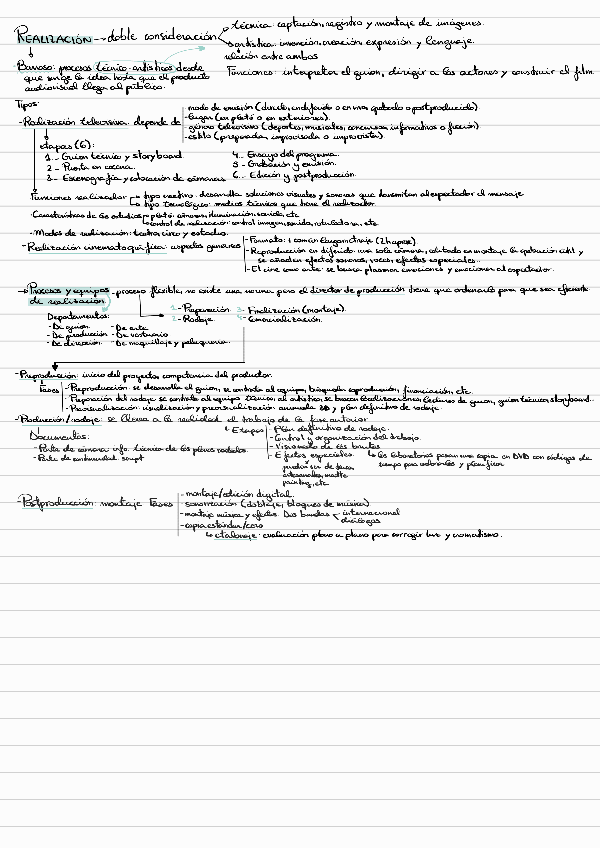 REALIZACIÓN → doble consideración
técnica: captación, registro y montaje de imágenes.
artística: invención, creación, expresión y lenguaje.
relación entre ambas
Barroso: procesos técnico-artísticos desde
que surge la idea hasta que el producto
audiovisual llega al público.
Funciones: interpretar el guion, dirigir a los actores y construir el film
Tipos:
- Realización televisiva: depende de
- modo de emisión (directo, en diferido o en vivo, grabado o postproducido)
- lugar (en plató o en exteriores).
- género televisivo (deportes, musicales, concursos, informativos o ficción)
- estilo (preparada, improvisada o imprevista)
etapas (6):
1._ Guion técnico y storyboard.
2._ Puesta en escena.
3._ Escenografía y colocación de cámaras
4._ Ensayo del programa.
5._ Grabación y emisión.
6._ Edición y postproducción.
Funciones realizador
tipo creativo: desarrolla soluciones visuales y sonoras que transmitan al espectador el mensaje
tipo tecnológico: medios técnicos que tiene el realizador.
- Características de los estudios
plató: cámaras, iluminación, sonido, etc
control de realización: control imagen, sonido, rotuladora, etc.
- Modos de realización: teatro, circo y estadio.
- Realización cinematográfica: aspectos generales
- Formato: + común largometraje (2 horas).
- Reproducción en diferido: una sola cámara, cuidado en montaje la grabación útil y
se añaden efectos sonoros, voces, efectos especiales...
- El cine como arte: se busca plasmar emociones y emocionar al espectador.
→ Procesos y equipos
de realización
- proceso flexible, no existe una norma pero el director de producción tiene que ordenarlo para que sea eficiente
1- Preparación 3- Finalización (montaje).
2- Rodaje 4- Comercialización.
Departamentos:
- De guion - De arte
- De producción - De vestuario
- De dirección - De maquillaje y peluquería.
- Preproducción: inicio del proyecto, competencia del productor.
Fases
- Preproducción: se desarrolla el guion, se contrata al equipo, búsqueda coproducción, financiación, etc.
- Preparación del rodaje: se contrata al equipo técnico, al artístico, se buscan localizaciones, lecturas de guion, guion técnico, storyboard.
- Previsualización: visualización y previsualización animada 3D y plan definitivo de rodaje.
- Producción/rodaje: se lleva a la realidad el trabajo de la fase anterior
Etapas
- Plan definitivo de rodaje.
- Control y organización del trabajo.
- Visionado de los brutos
los laboratorios pasan una copia en DVD con códigos de
tiempo para valorarlos y planificar
- Efectos especiales
pueden ser de
artesanales, matte
painting, etc
Documentos:
- Parte de cámara: info. técnica de los planos rodados.
- Parte de continuidad: script
- Postproducción: montaje Fases
- montaje/edición digital.
- sonorización (doblaje, bloques de música)
- montaje música y efectos. Dos bandas
internacional
diálogos
- copia estándar/cero
etalonaje: evaluación plano a plano para corregir luz y cromatismo.